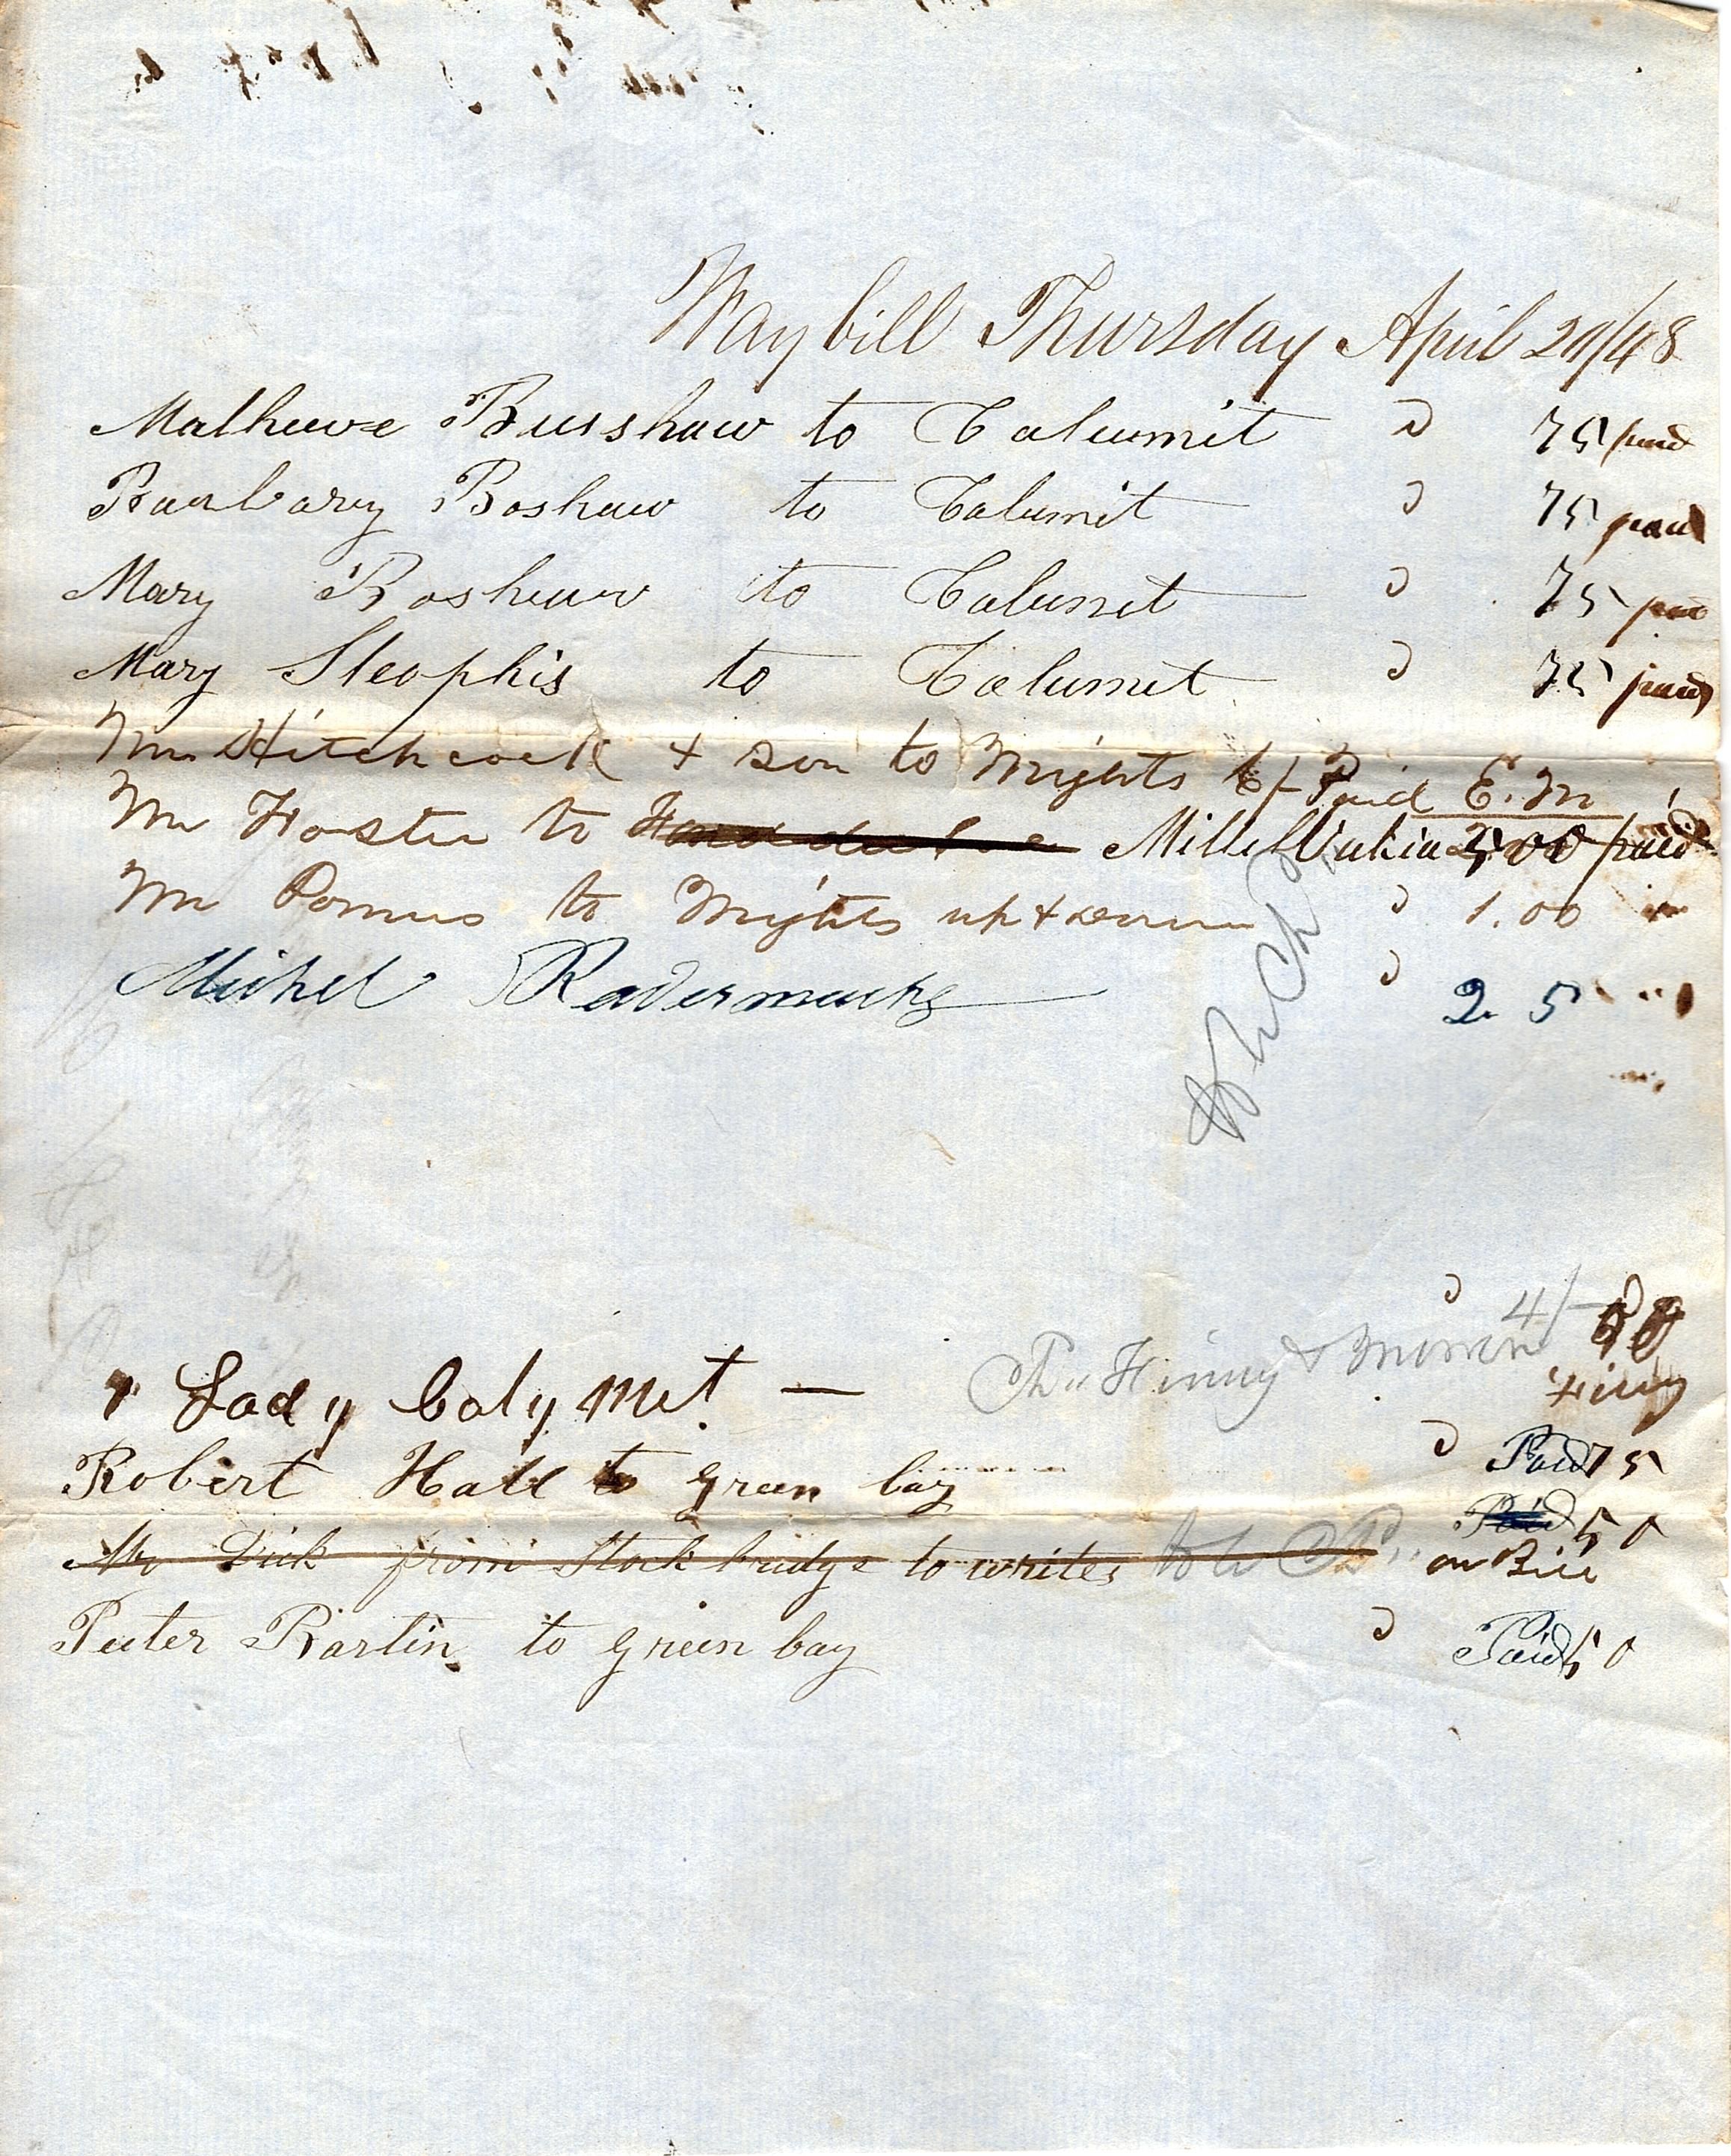 Way bill Thursday April 20/48
Mathuwe Busshaw to Calumit 75 paid
Barbary Boshaw to Calumit 75 paid
Mary Boshaw to Calumet 75 paid
Mary Sleophis to Calumet 75 paid
Mr Hitchcock & son to Wrights 6/- Paid E. M
Mr Foster to Fond du Lac MilleWukia 2,00 paid
Mr Pomus to Wrights up & down 1.00
Michel Radermachg 2 5
4/-
1 Lady Calymet —
Robert Hall to green bay Paid 75
Mr Dick from Stockbridge to writes Paid 50
on Bill
Peeter Bartin to green bay Paid 50